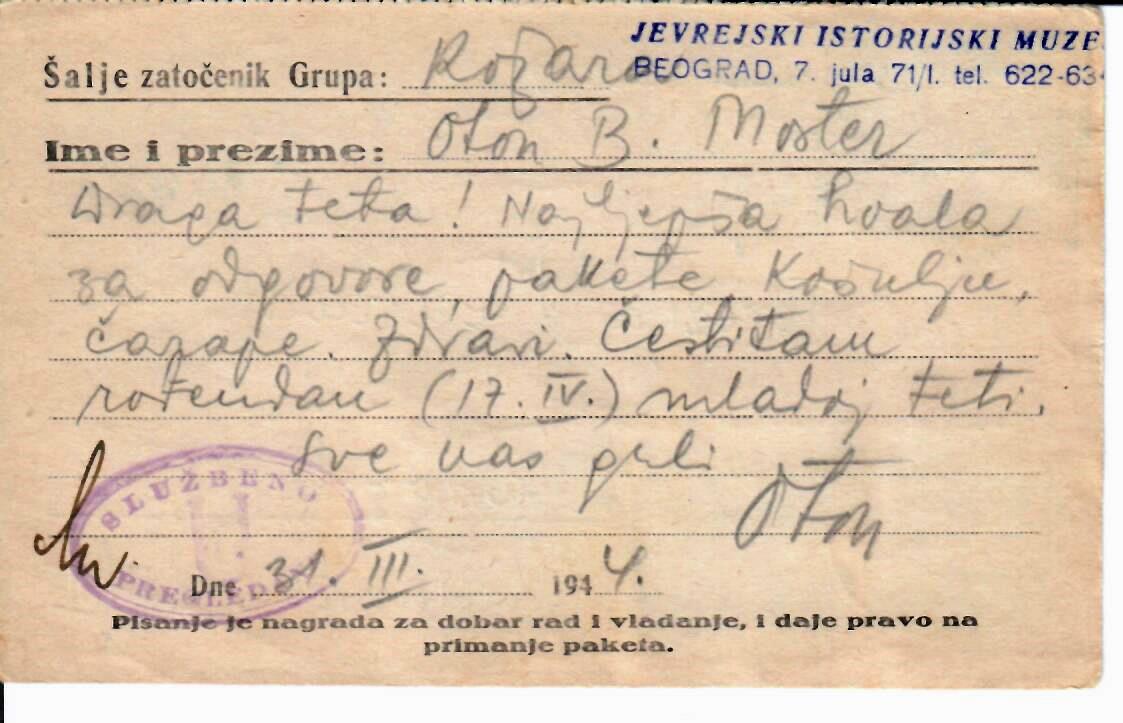 JEVREJSKI ISTORIJSKI MUZE
BEOGRAD, 7. jula 71/I. tel. 622-634
Šalje zatočenik Grupa: Kožara
Ime i prezime: Oton B. Moster
Draga teta! Najljepša hvala
za odgovore, pakete Košulju,
čarape. Zdrav. Čestitam
rođendan (17. IV.) mladoj teti.
Sve vas grli
Oton
SLUŽBENO
PREGLEDANO
Dne 31. III. 1944.
Pisanje je nagrada za dobar rad i vladanje, i daje pravo na
primanje paketa.